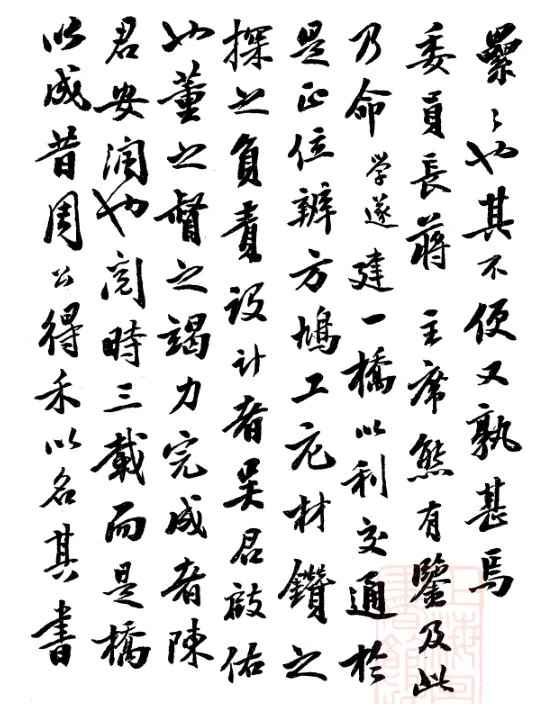 纍〻也其不便又孰甚焉
委員長蔣主席熊有鑒及此
乃命學遂建一橋以利交通於
是正位辨方鳩工庀材鑽之
探之負責設計者吴君啟佑
也董之督之竭力完成者陳
君安润也閱時三載而是橋
以成昔周公得禾以名其書